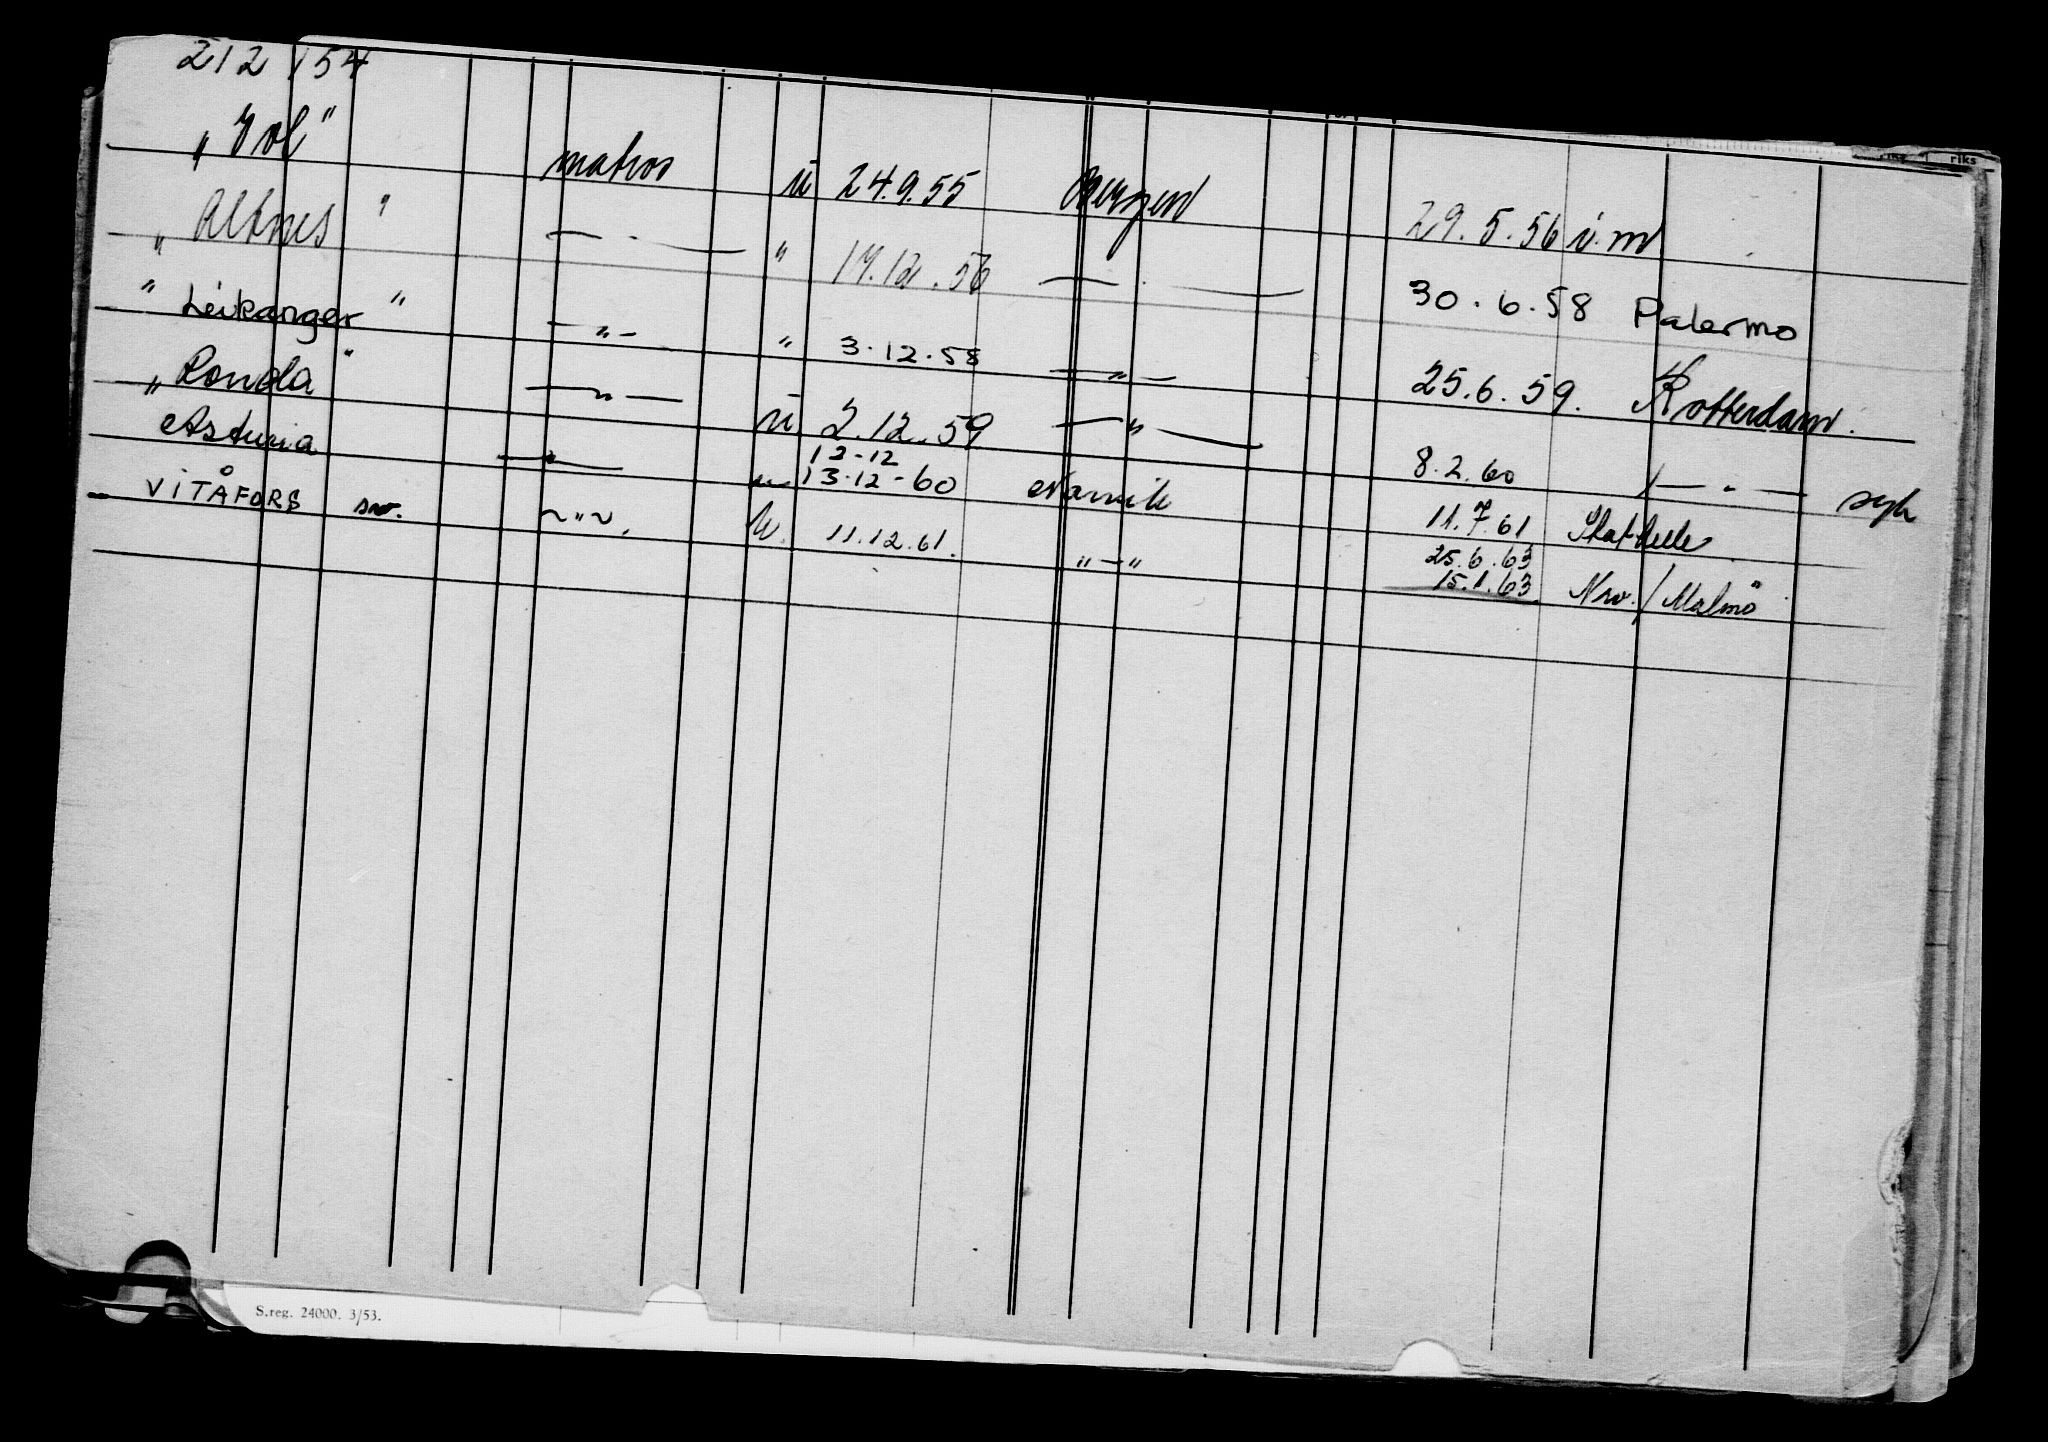 212 154
riks
"Vol" matros u 24.9.55 Bergen 29.5.56 i.m
"Altnes" — " — " 17.12.56 — " — 30.6.58 Palermo
"Leikanger" — " — " 3.12.58 — " — 25.6.59. Rotterdam.
"Ronda" — " — u 2.12.59 — " — 8.2.60 — " — syk
12-12
Asturia — " — 13.12-60 Narvik 11.7.61 Stathelle
25.6.63
VITÅFORS sv. ~ " ~. u. 11.12.61. " — " 15.1.63 Nrv. / Malmö
S.reg. 24000. 3/53.